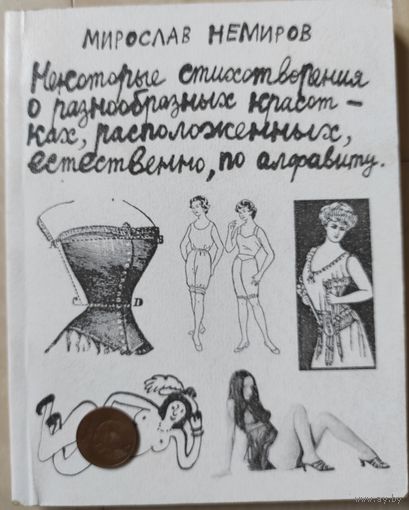 МИРОСЛАВ НЕМИРОВ
Некоторые стихотворения
о разнообразных красот-
ках, расположенных,
естественно, по алфавиту.
www.ay.by